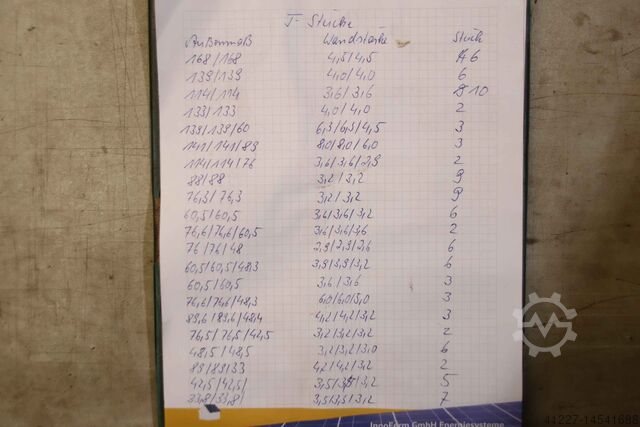 T-Stücke
Außenmaß Wandstärke Stück
168/168 4,5/4,5 16
139/139 4,0/4,0 6
114/114 3,6/3,6 10
133/133 4,0/4,0 2
139/139/60 6,3/6,3/4,5 3
141/141/89 8,0/8,0/6,0 3
114/114/76 3,6/3,6/2,9 2
88/88 3,2/3,2 9
76,3/76,3 3,2/3,2 9
60,5/60,5 3,6/3,6/3,2 6
76,6/76,6/60,5 3,6/3,6/3,6 2
76/76/48 2,9/2,9/2,6 6
60,5/60,5/48,3 3,9/3,9/3,2 6
60,5/60,5 3,6/3,6 3
76,6/76,6/48,3 6,0/6,0/5,0 3
89,6/89,6/48,4 4,2/4,2/3,2 3
76,5/76,5/42,5 3,2/3,2/3,2 2
48,5/48,5 3,2/3,2/3,0 6
89/89/33 4,2/4,2/3,2 2
42,5/42,5/ 3,5/3,5/3,2 5
33,8/33,8/ 3,5/3,5/3,2 7
InnoFerm GmbH Energiesysteme
41227-14541698